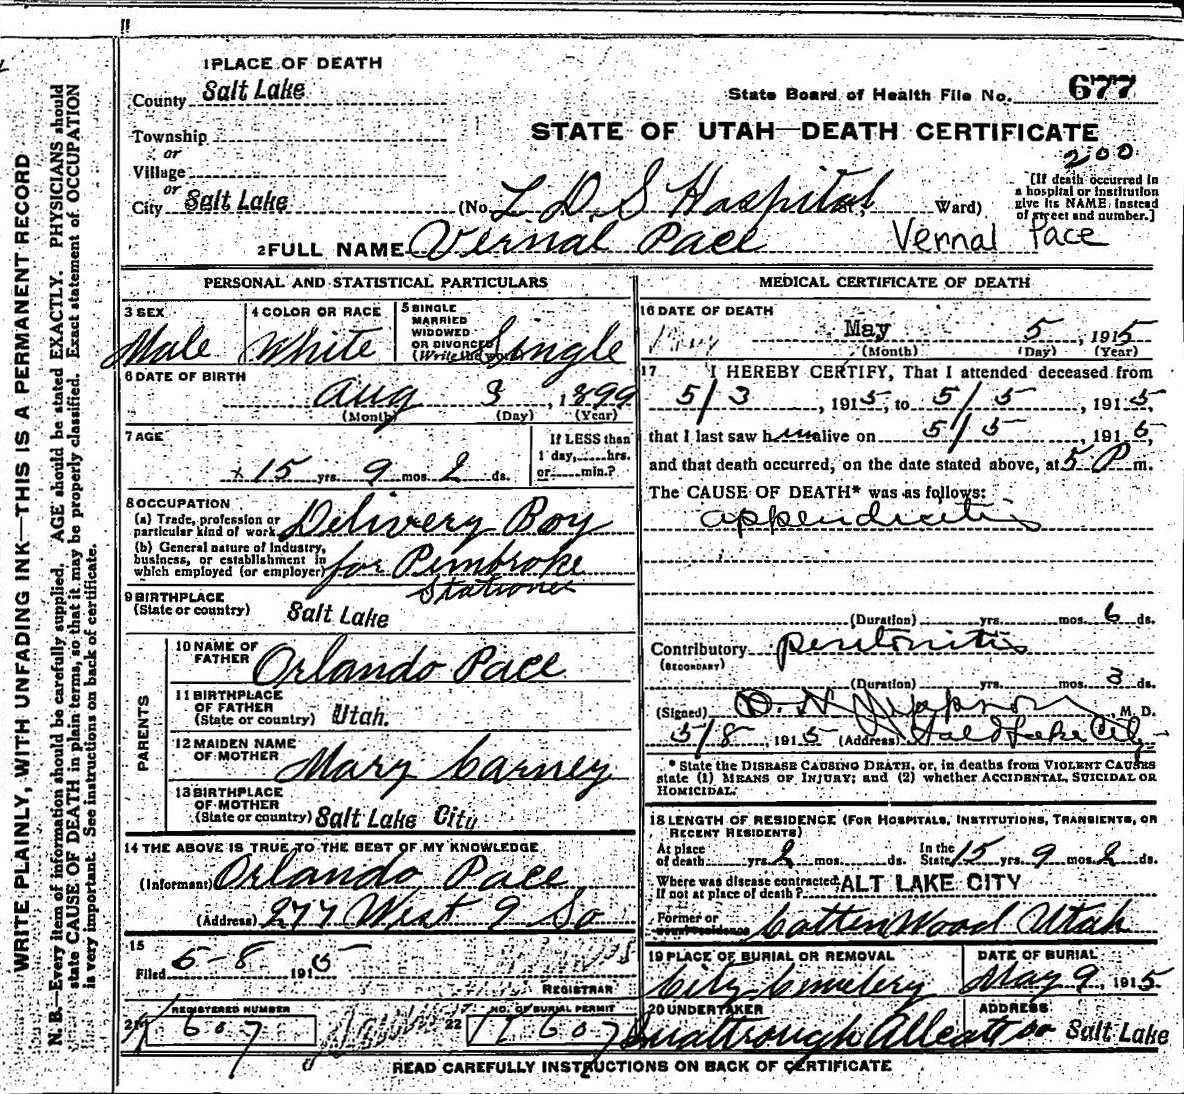 1 PLACE OF DEATH
County Salt Lake
Township
or
Village
or
City Salt Lake
State Board of Health File No. 677
STATE OF UTAH—DEATH CERTIFICATE
200
(No. L D S Hospital St., Ward)
[If death occurred in
a hospital or institution
give its NAME instead
of street and number.]
2 FULL NAME Vernal Pace Vernal Pace
PERSONAL AND STATISTICAL PARTICULARS
3 SEX
Male
4 COLOR OR RACE
White
5 SINGLE
MARRIED
WIDOWED
OR DIVORCED
(Write the word)
Single
6 DATE OF BIRTH
Aug 3, 1899
(Month) (Day) (Year)
7 AGE
15 yrs. 9 mos. 2 ds.
If LESS than
1 day, hrs.
or min.?
8 OCCUPATION
(a) Trade, profession or
particular kind of work Delivery Boy
(b) General nature of industry,
business, or establishment in
which employed (or employer) for Pembroke
Stationer
9 BIRTHPLACE
(State or country) Salt Lake
PARENTS
10 NAME OF
FATHER Orlando Pace
11 BIRTHPLACE
OF FATHER
(State or country) Utah.
12 MAIDEN NAME
OF MOTHER Mary Carney
13 BIRTHPLACE
OF MOTHER
(State or country) Salt Lake City
14 THE ABOVE IS TRUE TO THE BEST OF MY KNOWLEDGE
(Informant) Orlando Pace
(Address) 277 West 9 So
15
Filed 5-8 1915
REGISTRAR
21
REGISTERED NUMBER
607
22
NO. OF BURIAL PERMIT
607
MEDICAL CERTIFICATE OF DEATH
16 DATE OF DEATH
May 5, 1915
(Month) (Day) (Year)
17 I HEREBY CERTIFY, That I attended deceased from
5/3, 1915, to 5/5, 1915,
that I last saw him alive on 5/5, 1915,
and that death occurred, on the date stated above, at 5 P m.
The CAUSE OF DEATH* was as follows:
appendicitis
(Duration) yrs. mos. 6 ds.
Contributory peritonitis
(SECONDARY)
(Duration) yrs. mos. 3 ds.
(Signed) M. D.
5/8, 1915 (Address) Salt Lake City
* State the DISEASE CAUSING DEATH, or, in deaths from VIOLENT CAUSES
state (1) MEANS OF INJURY; and (2) whether ACCIDENTAL, SUICIDAL OR
HOMICIDAL.
18 LENGTH OF RESIDENCE (FOR HOSPITALS, INSTITUTIONS, TRANSIENTS, OR
RECENT RESIDENTS)
At place
of death yrs. 2 mos. ds.
In the
State 15 yrs. 9 mos. 2 ds.
Where was disease contracted
If not at place of death? ALT LAKE CITY
Former or
usual residence Cotten Wood Utah
19 PLACE OF BURIAL OR REMOVAL
City Cemetery
DATE OF BURIAL
May 9, 1915.
20 UNDERTAKER
ADDRESS
Salt Lake
READ CAREFULLY INSTRUCTIONS ON BACK OF CERTIFICATE
WRITE PLAINLY, WITH UNFADING INK—THIS IS A PERMANENT RECORD
N. B.—Every item of information should be carefully supplied. AGE should be stated EXACTLY. PHYSICIANS should
state CAUSE OF DEATH in plain terms, so that it may be properly classified. Exact statement of OCCUPATION
is very important. See instructions on back of certificate.